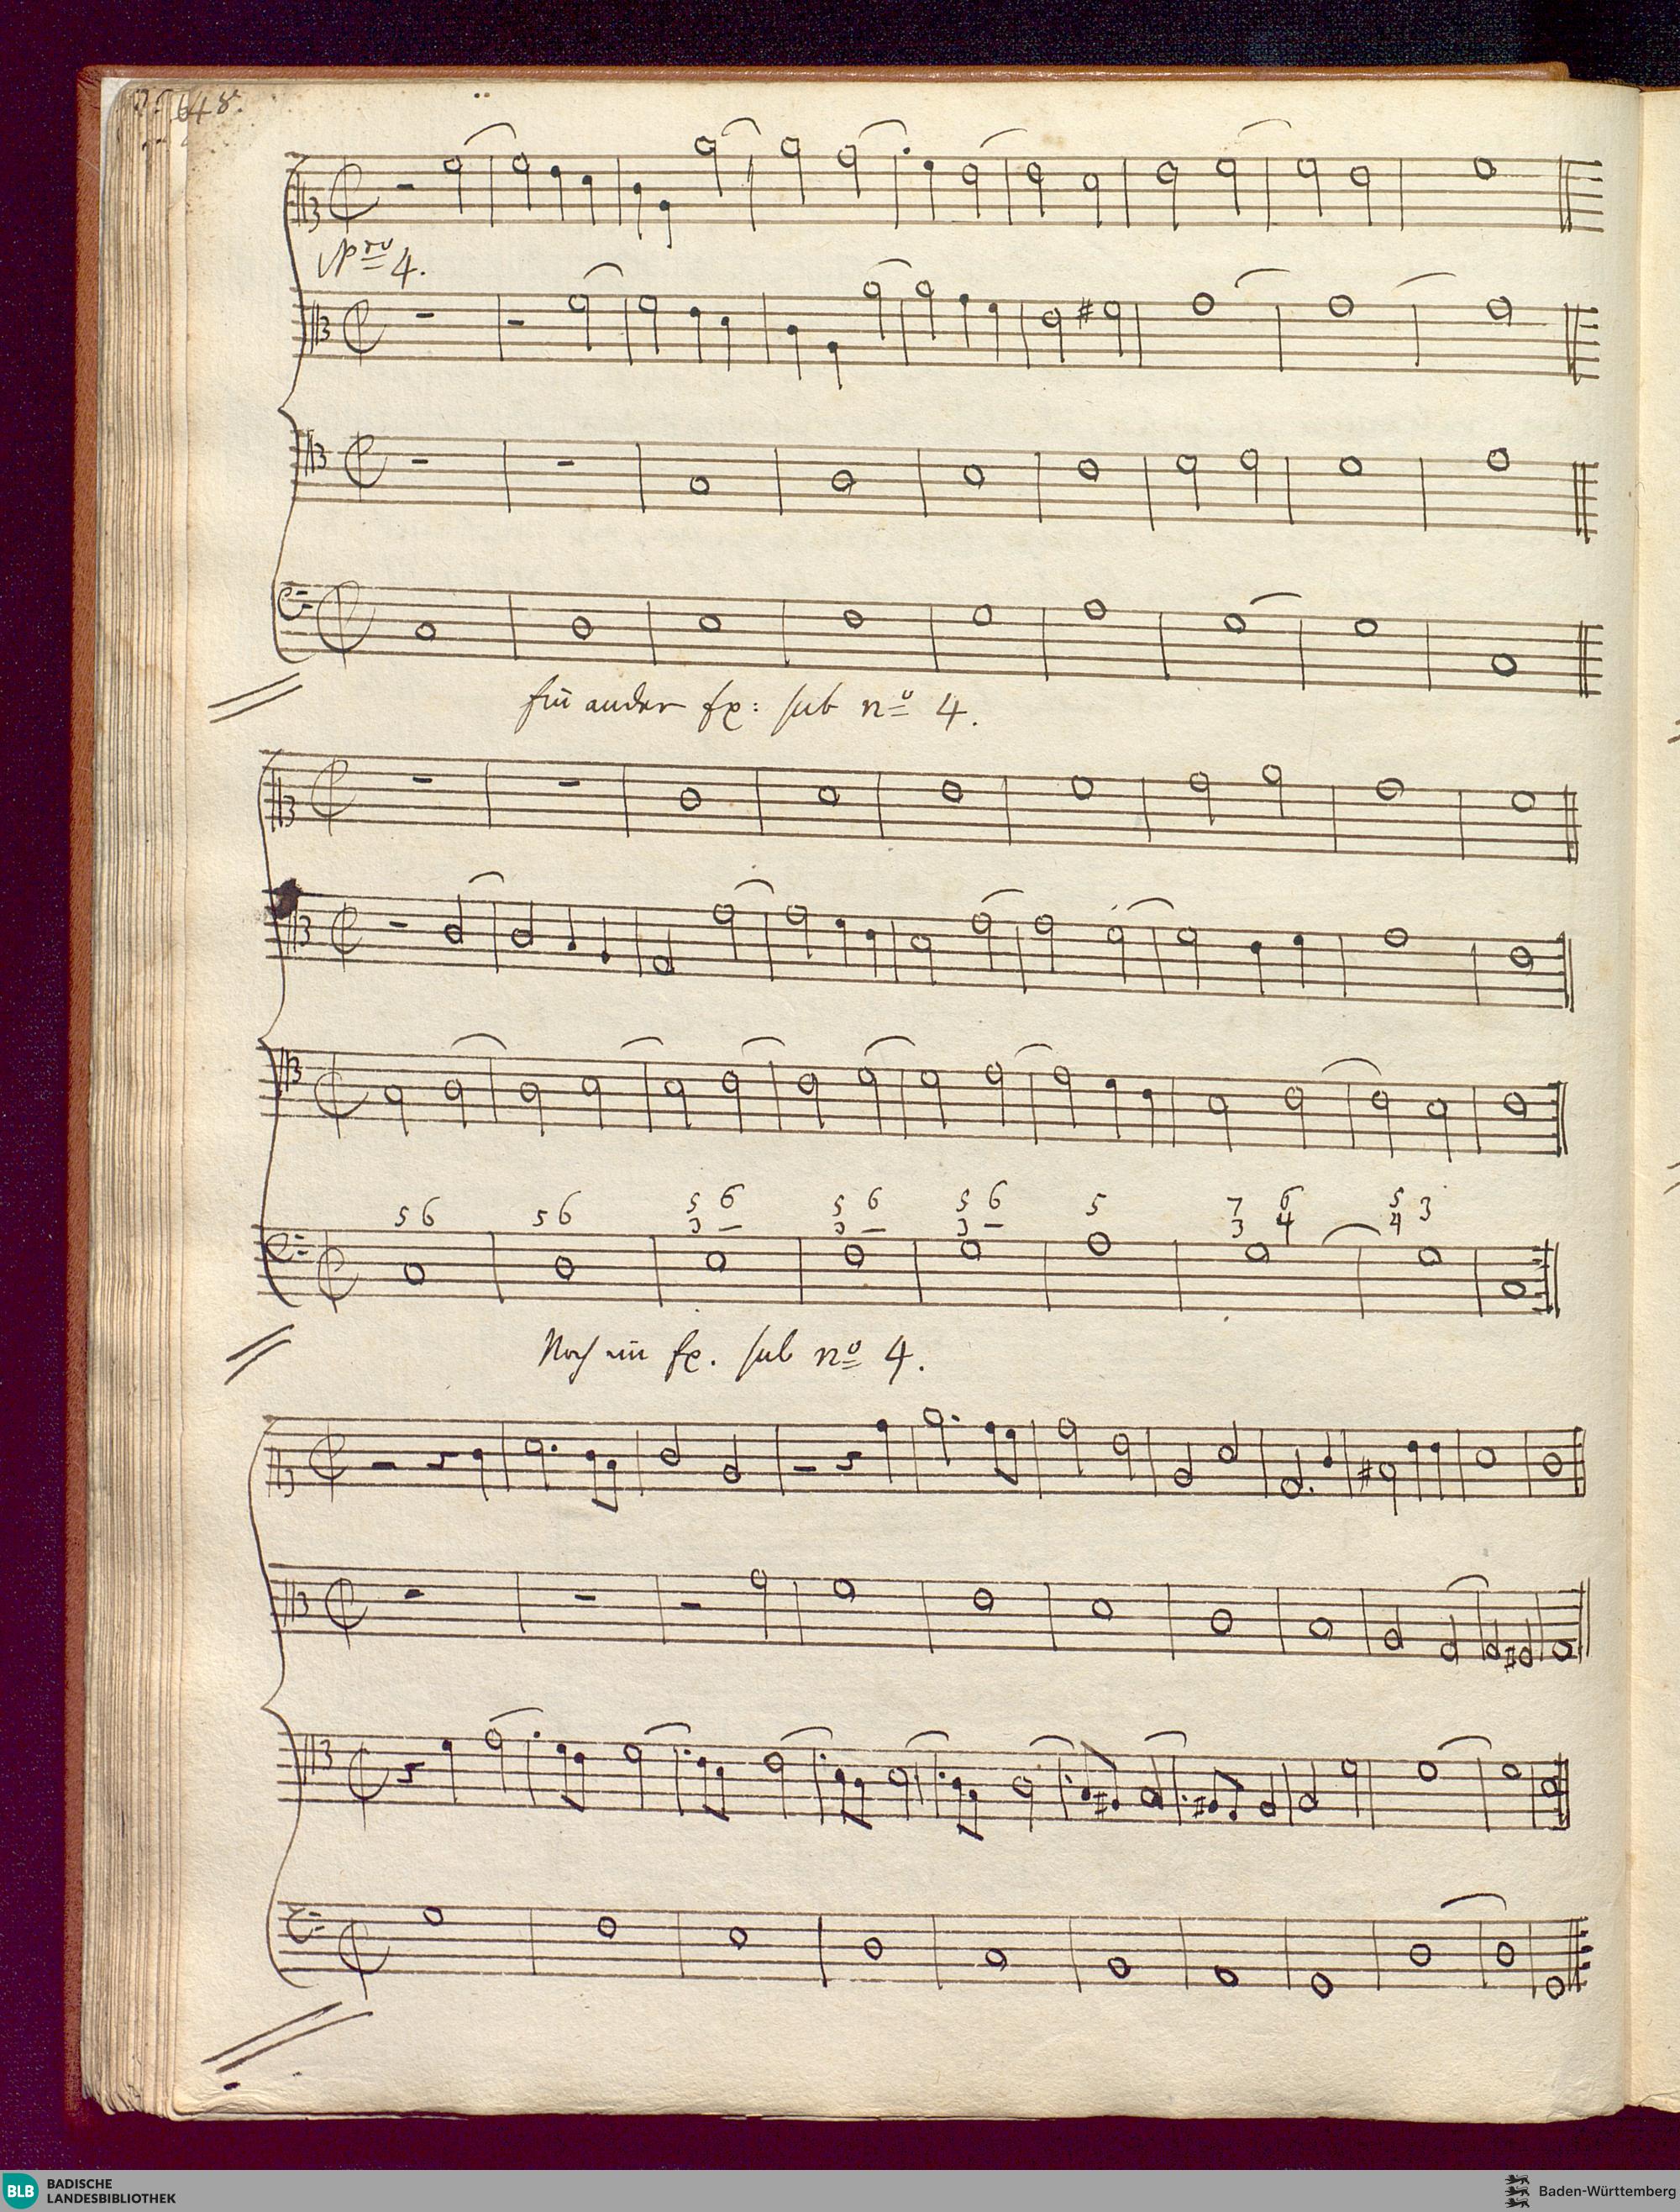 648.
Nro 4.
Ein ander Ex: sub no 4.
5 6 5 6 5 6 5 6 5 6 5 7 6 5 3
3 — 3 — 3 — 3 4 4
Noch ein Ex. sub no 4.
BLB
BADISCHE
LANDESBIBLIOTHEK
Baden-Württemberg